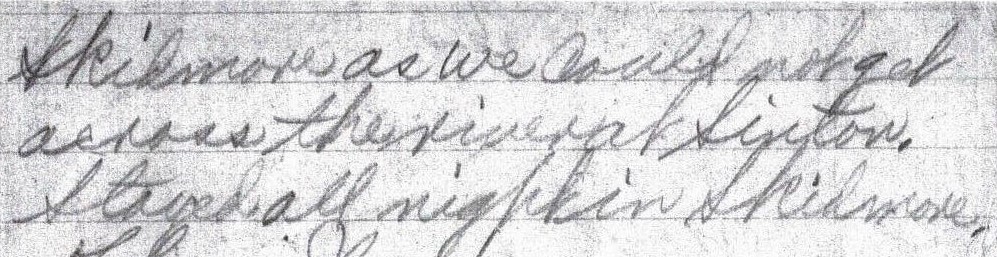 Skidmore as we could not get
across the river at Sinton.
Stayed all night in Skidmore.